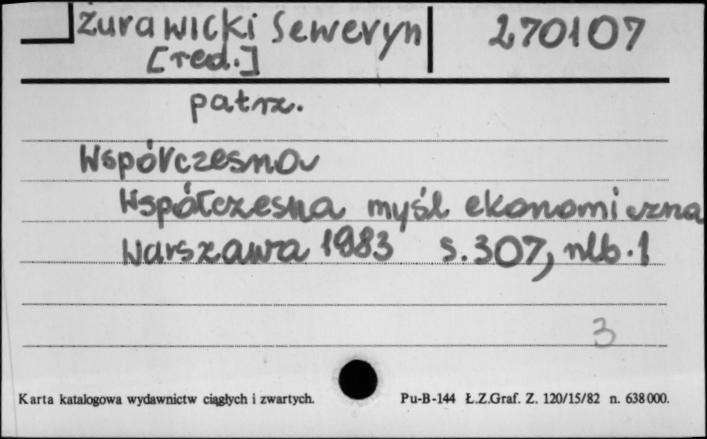 Żurawicki Seweryn 270107
[red.]
patrz.
Współczesna
Współczesna myśl ekonomiczna
Warszawa 1983 s.307, nlb.1
3
Karta katalogowa wydawnictw ciągłych i zwartych. Pu-B-144 Ł.Z.Graf. Z. 120/15/82 n. 638000.